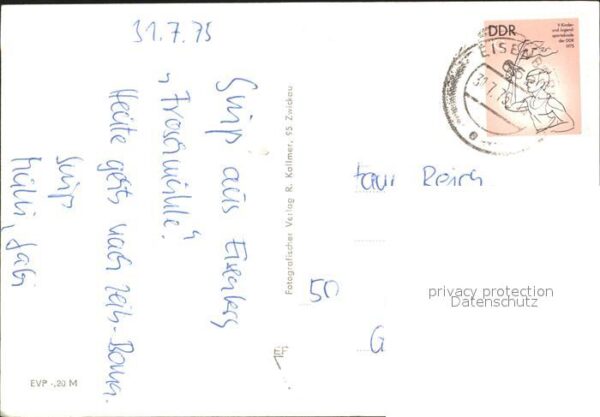 31.7.75
Grüß aus Eisenberg
"Froschmühle".
Heute gehts nach Zeitz-Borna.
Grüß
Gabi
Fotografischer Verlag R. Kallmer, 95 Zwickau
EVP -,20 M
DDR
V. Kinder-
und Jugend
spartakiade
der DDR
1975
EISENB
31.7.75
Frau Reich
50
G
privacy protection
Datenschutz